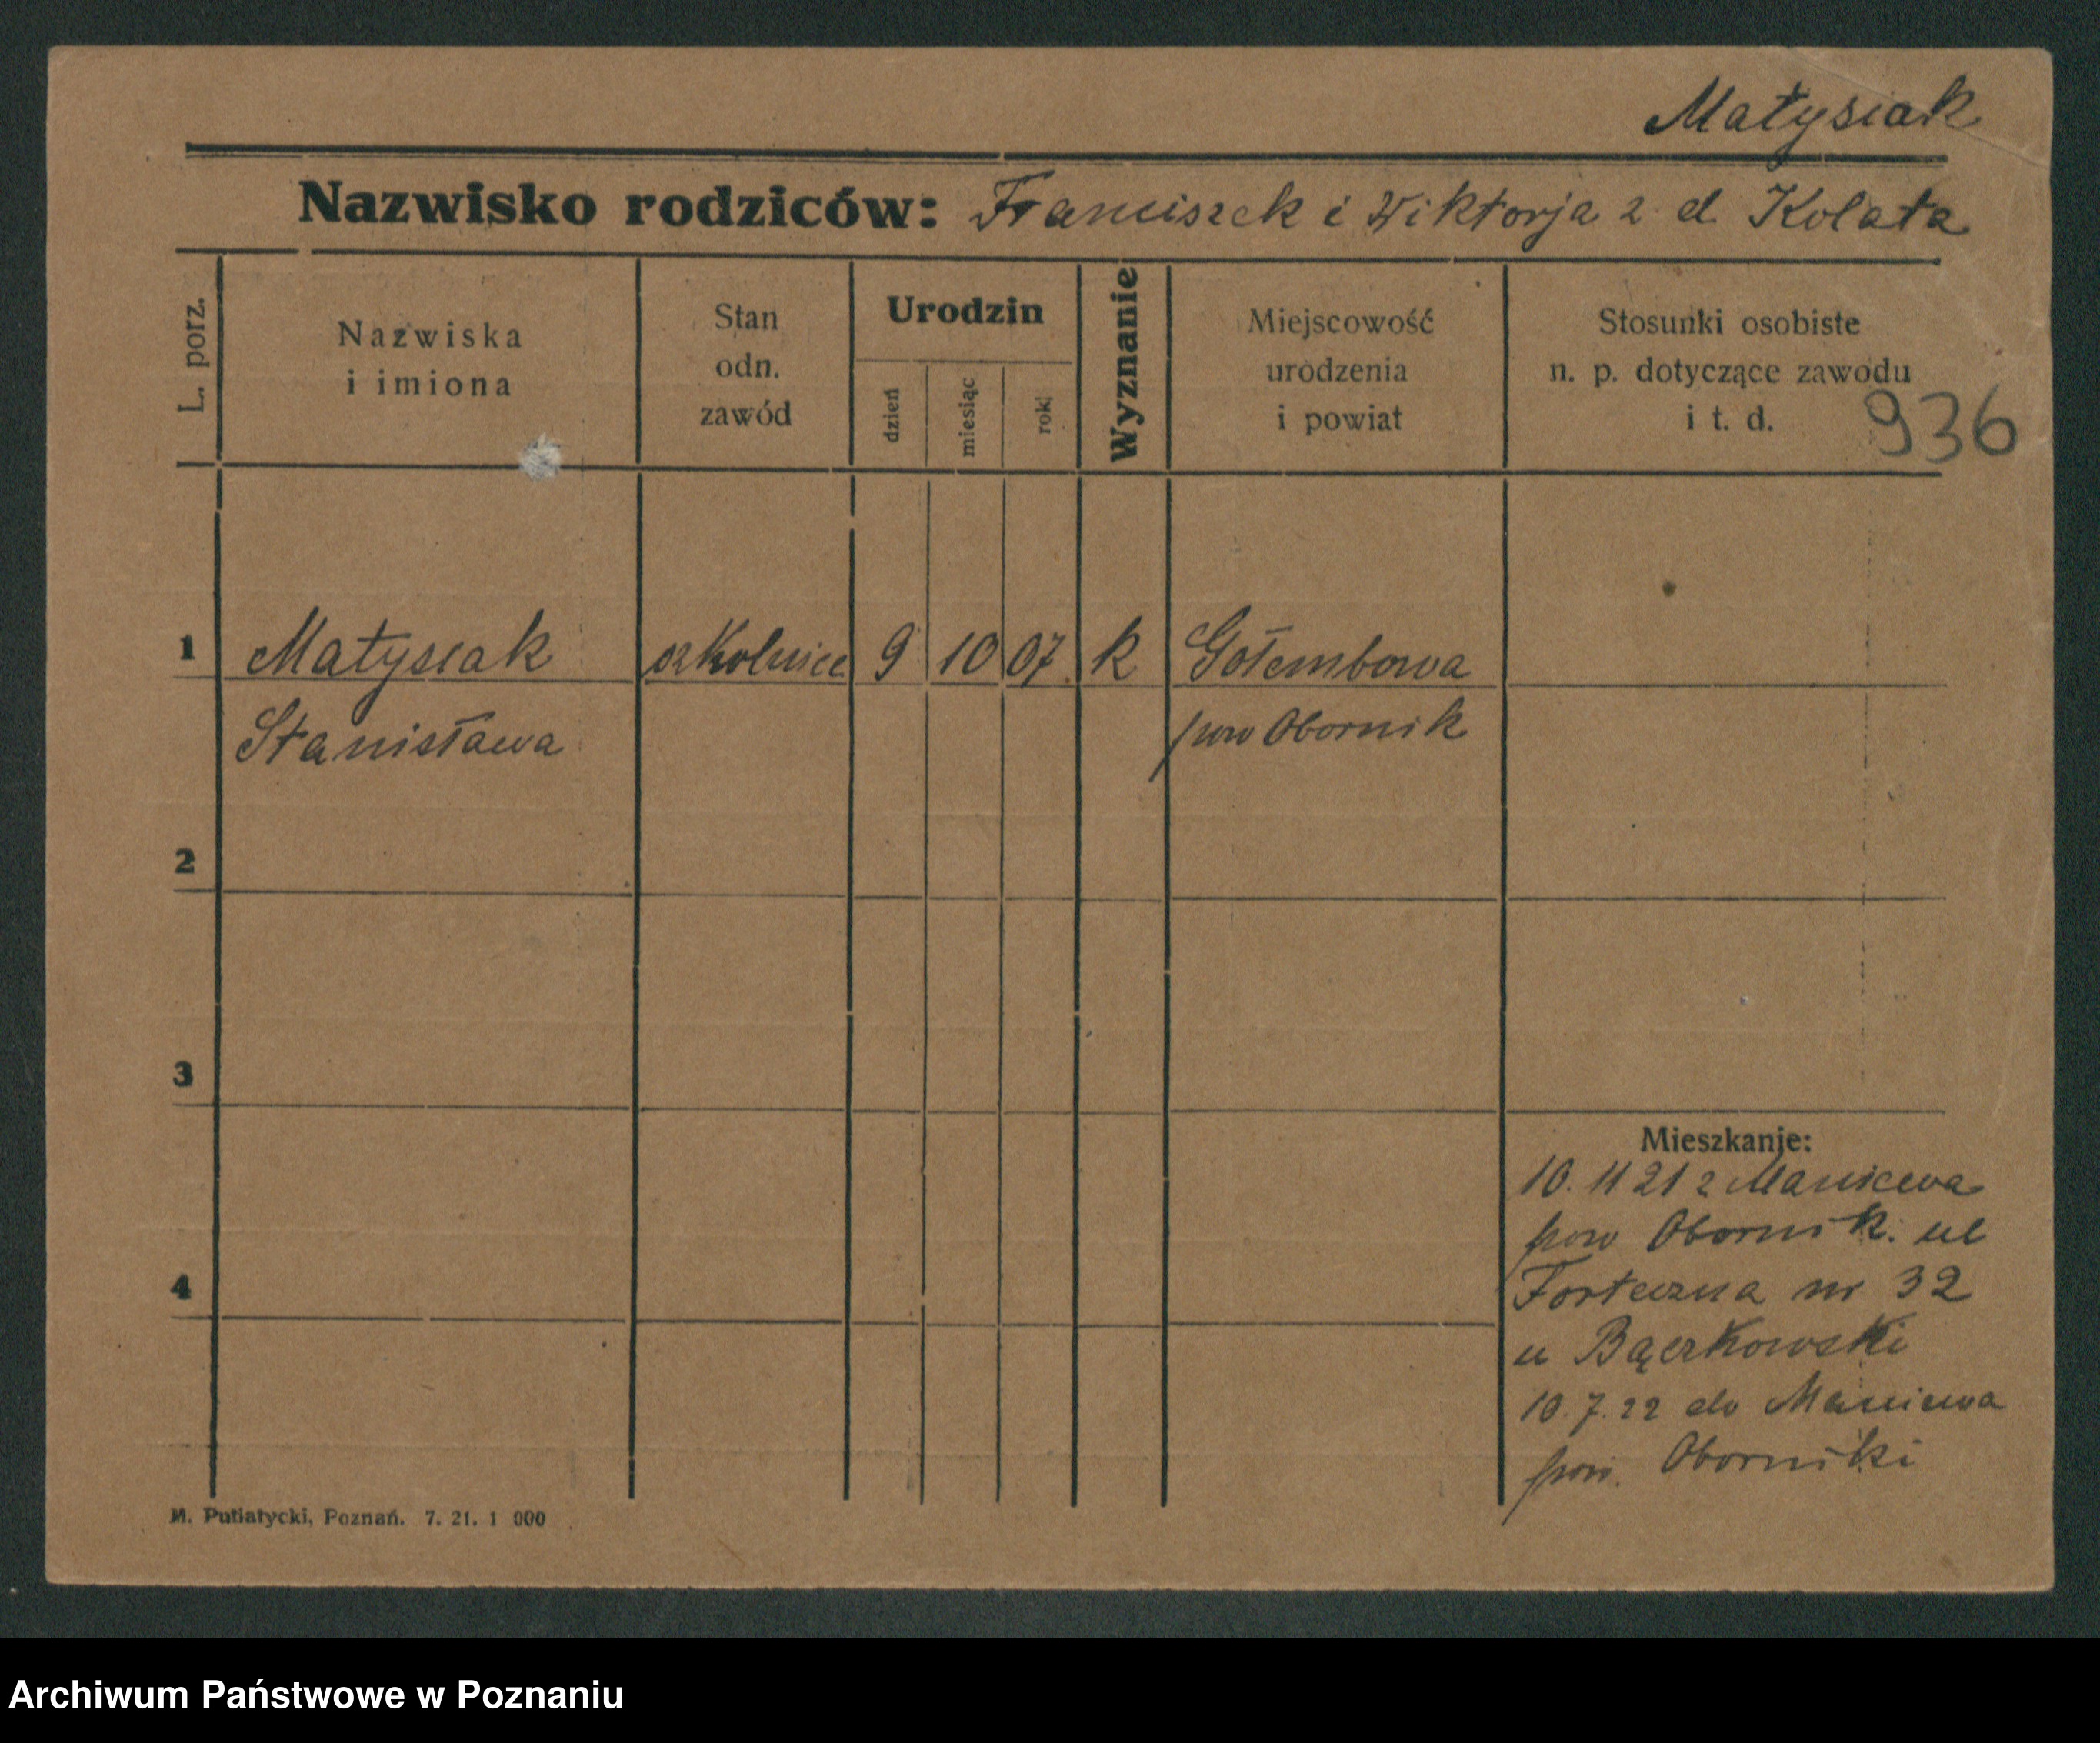 Matysiak
Nazwisko rodziców: Franciszek i Wiktorja z d Kolata
L. porz.
Nazwiska
i imiona
Stan
odn.
zawód
Urodzin
dzień
miesiąc
rok
Wyznanie
Miejscowość
urodzenia
i powiat
Stosunki osobiste
n. p. dotyczące zawodu
i t. d.
936
1 Matysiak 9 10 07 k Gołembowa
Stanisława pow Obornik
2
3
4
Mieszkanie:
10. 11 21 z Maniewa
pow Obornik. ul
Forteczna nr 32
u Bączkowski
10. 7. 22 do Maniewa
pow. Oborniki
M. Putiatycki, Poznań. 7. 21. 1 000
Archiwum Państwowe w Poznaniu